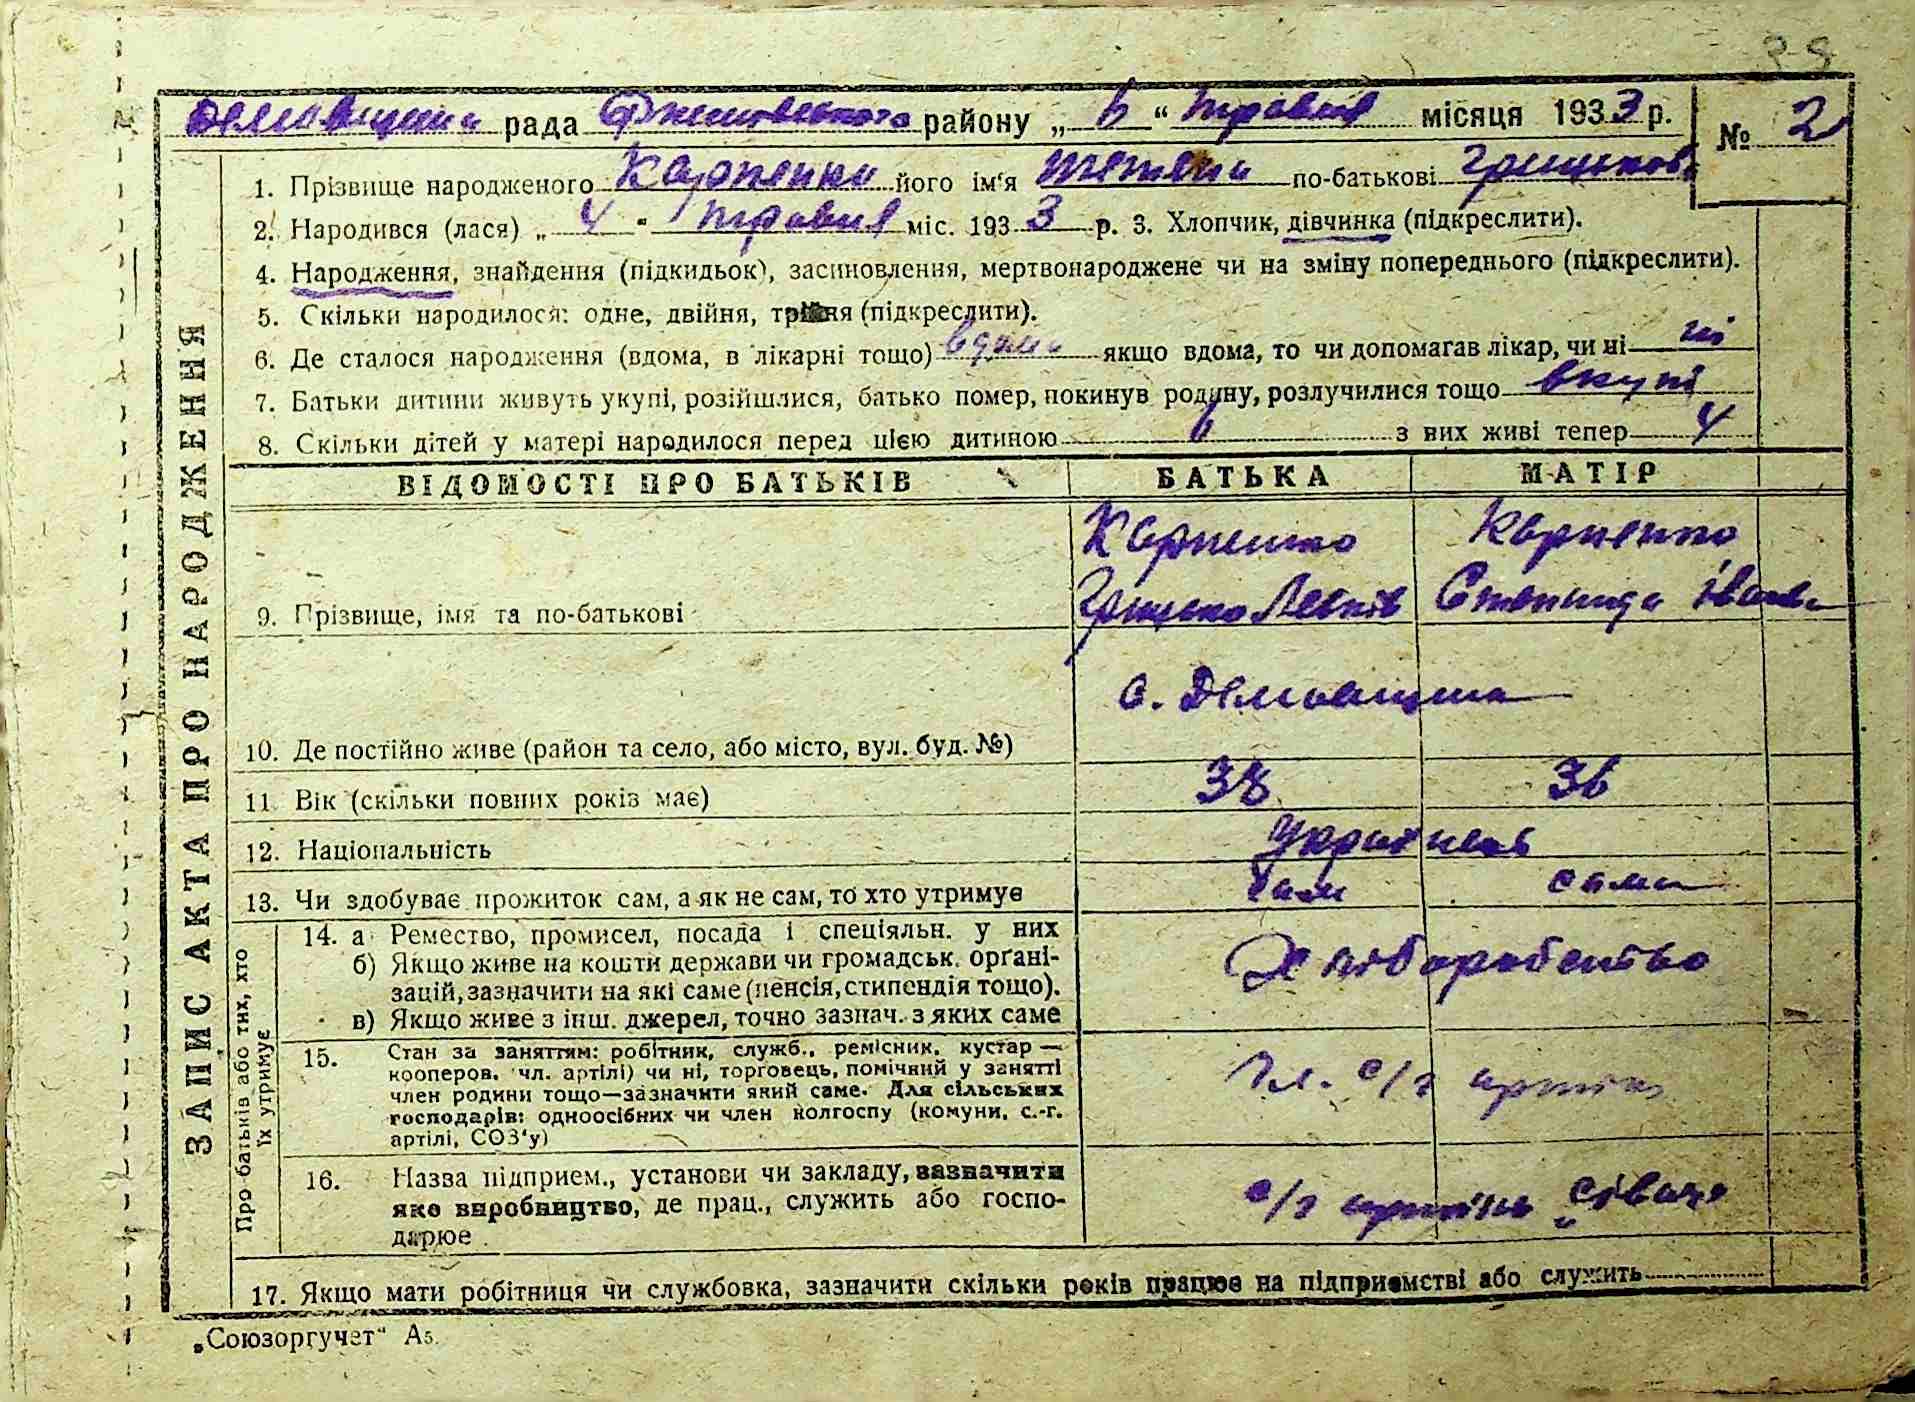 Демовщин рада Ржищевського району „ 6 “ травня місяця 1933 р. № 2
1. Прізвище народженого Карпенко його ім'я Тетяна по-батькові Грицьков.
2. Народився (лася) „ 4 “ травня міс. 1933 р. 3. Хлопчик, дівчинка (підкреслити).
4. Народження, знайдення (підкидьок), засиновлення, мертвонароджене чи на зміну попереднього (підкреслити).
5. Скільки народилося: одне, двійня, трійня (підкреслити).
6. Де сталося народження (вдома, в лікарні тощо) вдома якщо вдома, то чи допомагав лікар, чи ні ні
7. Батьки дитини живуть укупі, розійшлися, батько помер, покинув родину, розлучилися тощо вкупі
8. Скільки дітей у матері народилося перед цією дитиною 6 з них живі тепер 4
ЗАПИС АКТА ПРО НАРОДЖЕННЯ
ВІДОМОСТІ ПРО БАТЬКІВ БАТЬКА МАТІР
Карпенко Карпенко
9. Прізвище, імя та по-батькові Грицько Левків Степанида Іванів
с. Демовщина
10. Де постійно живе (район та село, або місто, вул. буд. №)
11 Вік (скільки повних років має) 38 36
12. Національність Українець
13. Чи здобуває прожиток сам, а як не сам, то хто утримує сам сама
Про батьків або тих, хто їх утримує
14. а Ремество, промисел, посада і спеціяльн. у них
б) Якщо живе на кошти держави чи громадськ. орґані-
зацій, зазначити на які саме (пенсія, стипендія тощо).
в) Якщо живе з інш. джерел, точно зазнач. з яких саме
Хліборобство
15. Стан за заняттям: робітник, служб., ремісник, кустар —
кооперов. чл. артілі) чи ні, торговець, помічний у занятті
член родини тощо—зазначити який саме. Для сільських
господарів: одноосібних чи член колгоспу (комуни, с.-г.
артілі, СОЗ'у)
Чл. с/г артілі
16. Назва підприєм., установи чи закладу, зазначити
яке виробництво, де прац., служить або госпо-
дарює
с/г артіль „Сівач“
17. Якщо мати робітниця чи службовка, зазначити скільки років працює на підприємстві або служить
„Союзоргучет“ А5.